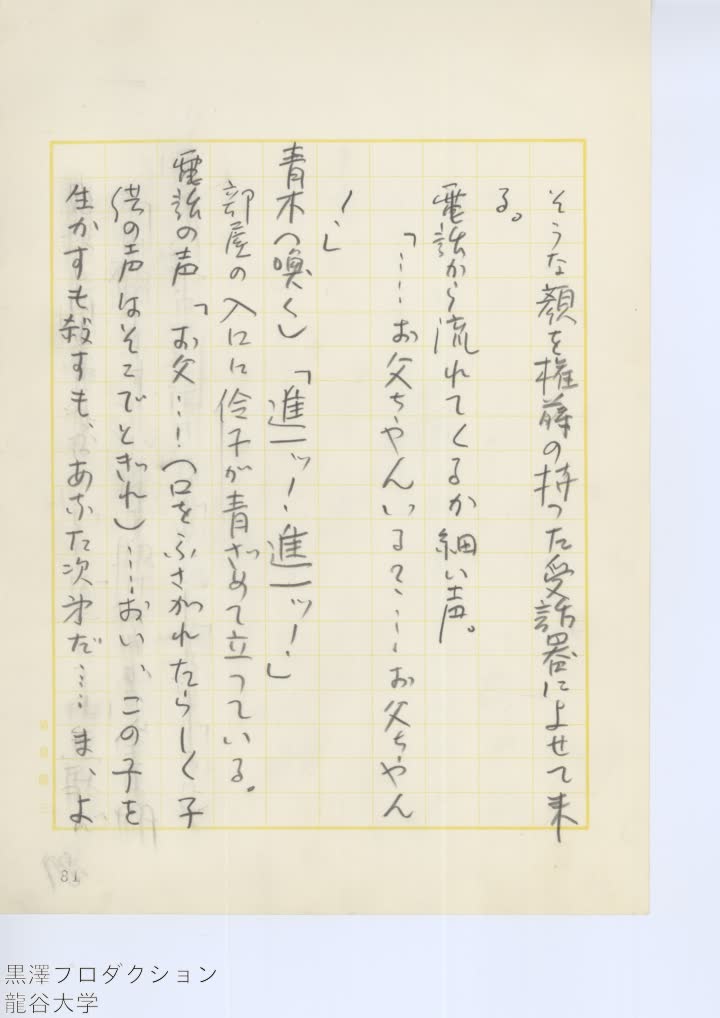 そうな顔を権藤の持った受話器によせて来
る。
電話から流れてくるか細い声。
「……お父ちやんいる？……お父ちやん
！」
青木（喚く）「進一ッ！進一ッ！」
部屋の入口に伶子が青ざめて立っている。
電話の声「お父…！（口をふさがれたらしく子
供の声はそこでとぎれ）……おい、この子を
生かすも殺すも、あなた次第だ……ま、よ
81
黒澤プロダクション
龍谷大学